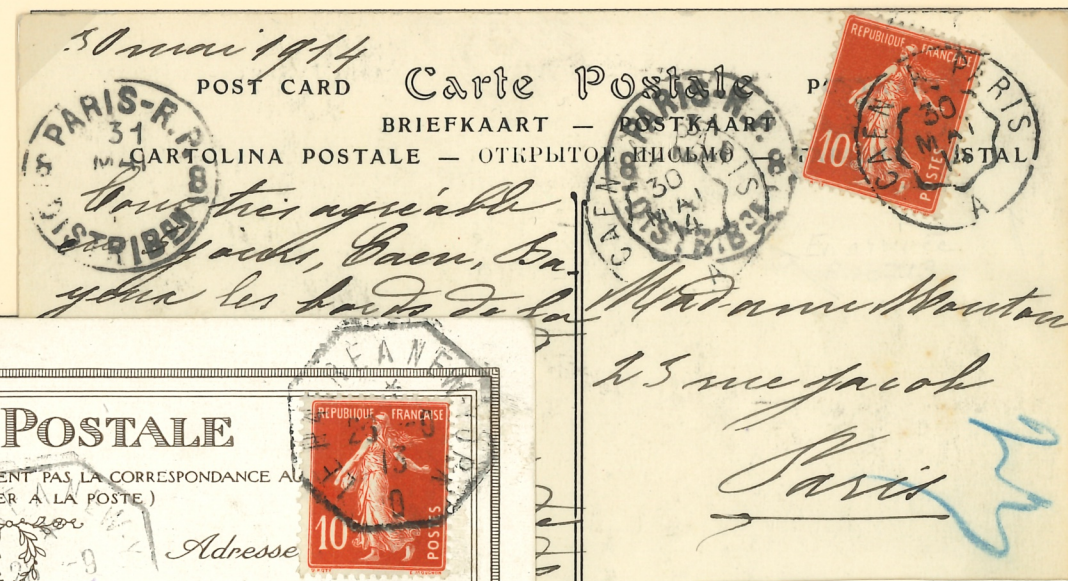 30 mai 1914
POST CARD Carte Postale P
BRIEFKAART — POSTKAART
CARTOLINA POSTALE — ОТКРЫТОЕ ПИСЬМО — STAL
PARIS-R.P.
31
MAI
8 DISTRIBON 8
PARIS-R.P.
8 DISTRIBON 8
CAEN A PARIS
30
MAI
14
A
REPUBLIQUE FRANÇAISE
10
POSTES
CAEN A PARIS
30
MAI
14
A
Tour très agréable
jours, Caen, Ba-
yeux les bords de la
Madame Mouton
23 rue Jacob
Paris
POSTALE
ENT PAS LA CORRESPONDANCE AU
ER A LA POSTE)
Adresse
LE HAVRE A NEW YORK
13
REPUBLIQUE FRANÇAISE
10
POSTES
A NEW